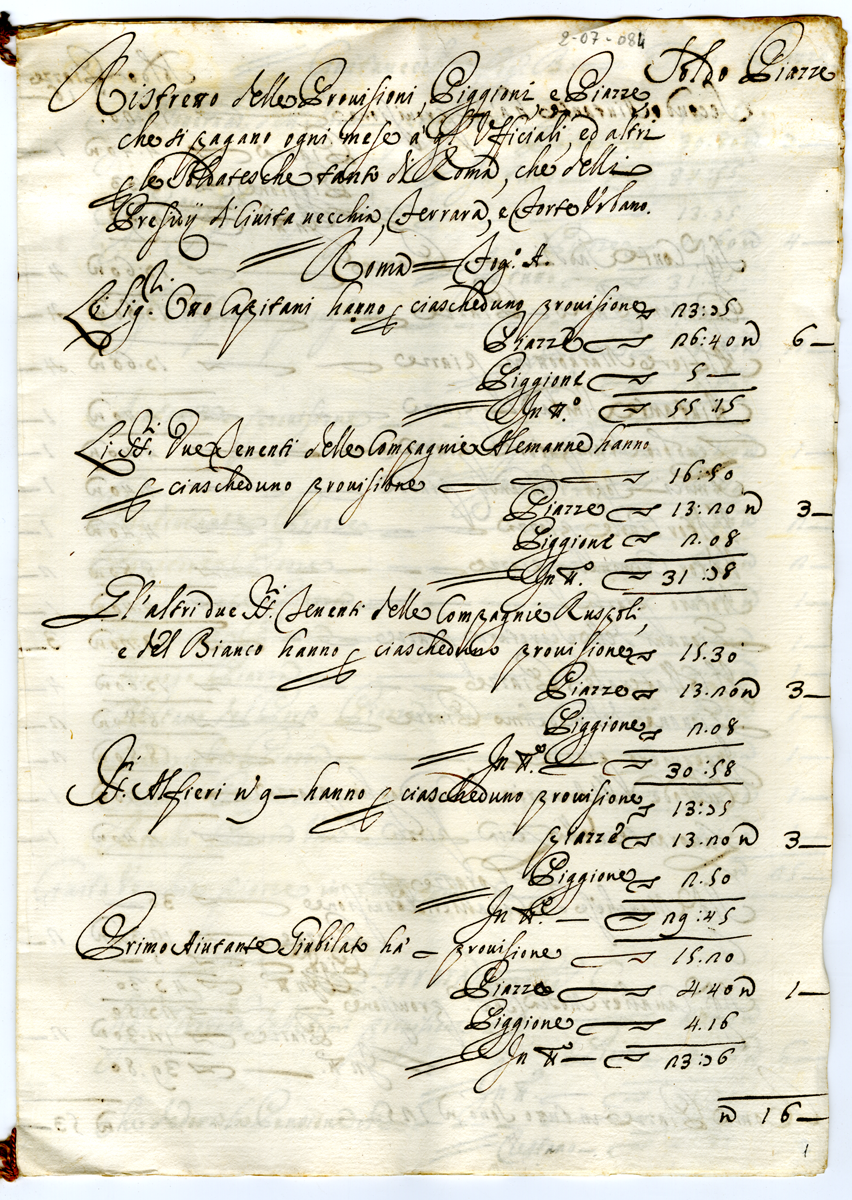 2-07-084
Soldo Piazze
Ristretto delle Provisioni, Piggioni e Piazze
che si pagano ogni mese à gl' Ufficiali, ed altri
p le Soldatesche tanto di Roma, che delli
Presidij di Civita vecchia, Ferrara, e Forte Urbano.
Roma = Fog.º A.
Li Sig.ri Otto Capitani hanno p ciascheduno provisione 23:75
Piazze 26:40 n 6—
Piggione 5—
In Tt.º 55:15
Li SS.ri Due Tenenti delle Compagnie Alemanne hanno
p ciascheduno provisione — 16:50
Piazze 13:20 n 3—
Piggione 2.08
In Tt.º 31:78
Gl'altri due SS.ri Tenenti delle Compagnie Ruspoli,
e del Bianco hanno p ciascheduno provisione 15.30
Piazze 13.20 n 3—
Piggione 2.08
In Tt.º 30:58
SS.ri Alfieri nº 9 — hanno p ciascheduno provisione 13:75
piazze 13.20 n 3—
Piggione 2.50
In Tt.º — 29:45
Primo Aiutante Giubilato hà — provisione 15.20
Piazze 4.40 n 1—
Piggione 4.16
In Tt.º — 23:76
n 16—
1